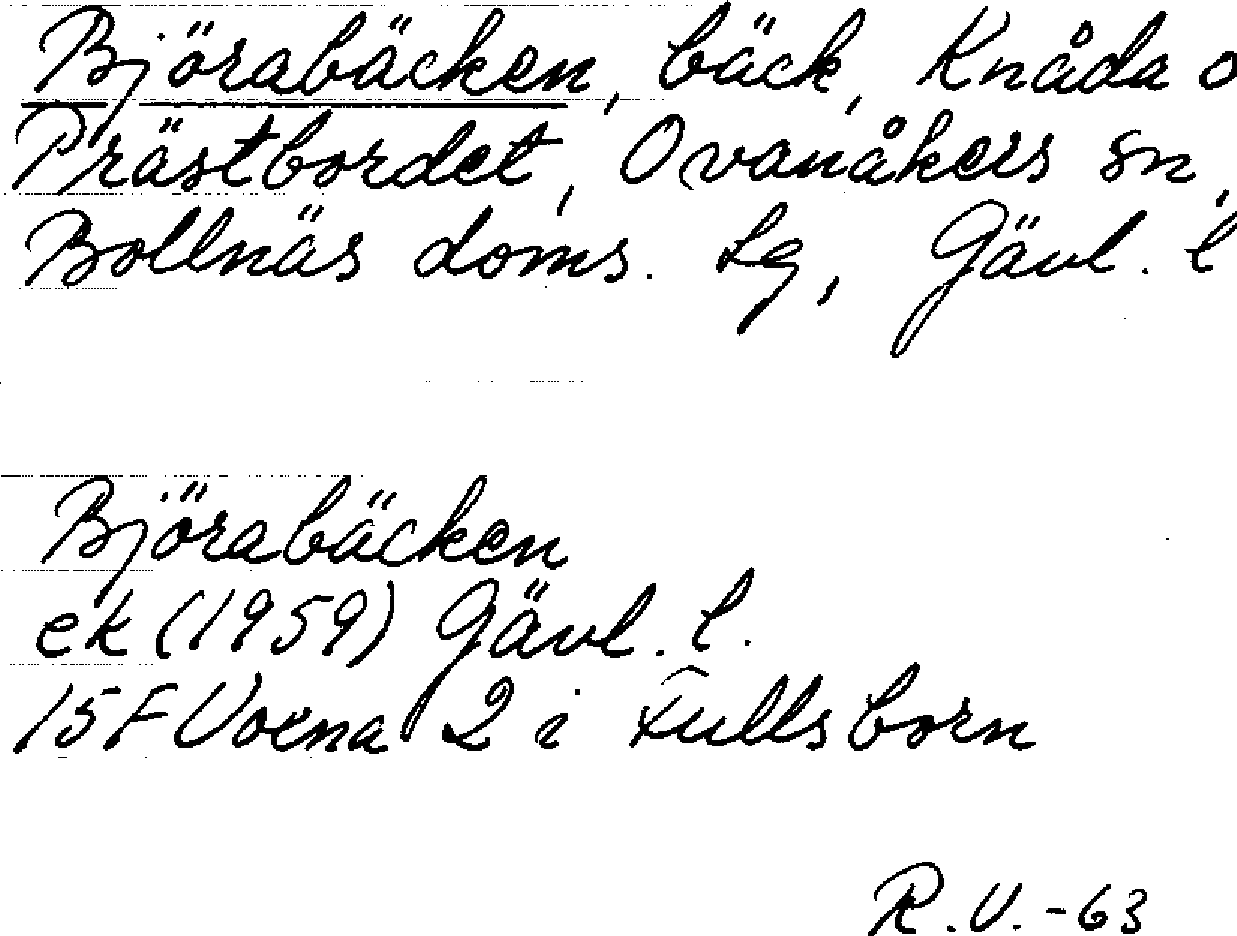 Björabäcken, bäck, Knåda o
Prästbordet, Ovanåkers sn,
Bollnäs doms. lg, Gävl. l
Björabäcken
ek (1959) Gävl. l.
15F Voxna 2 i Fullsborn
R.V.-63